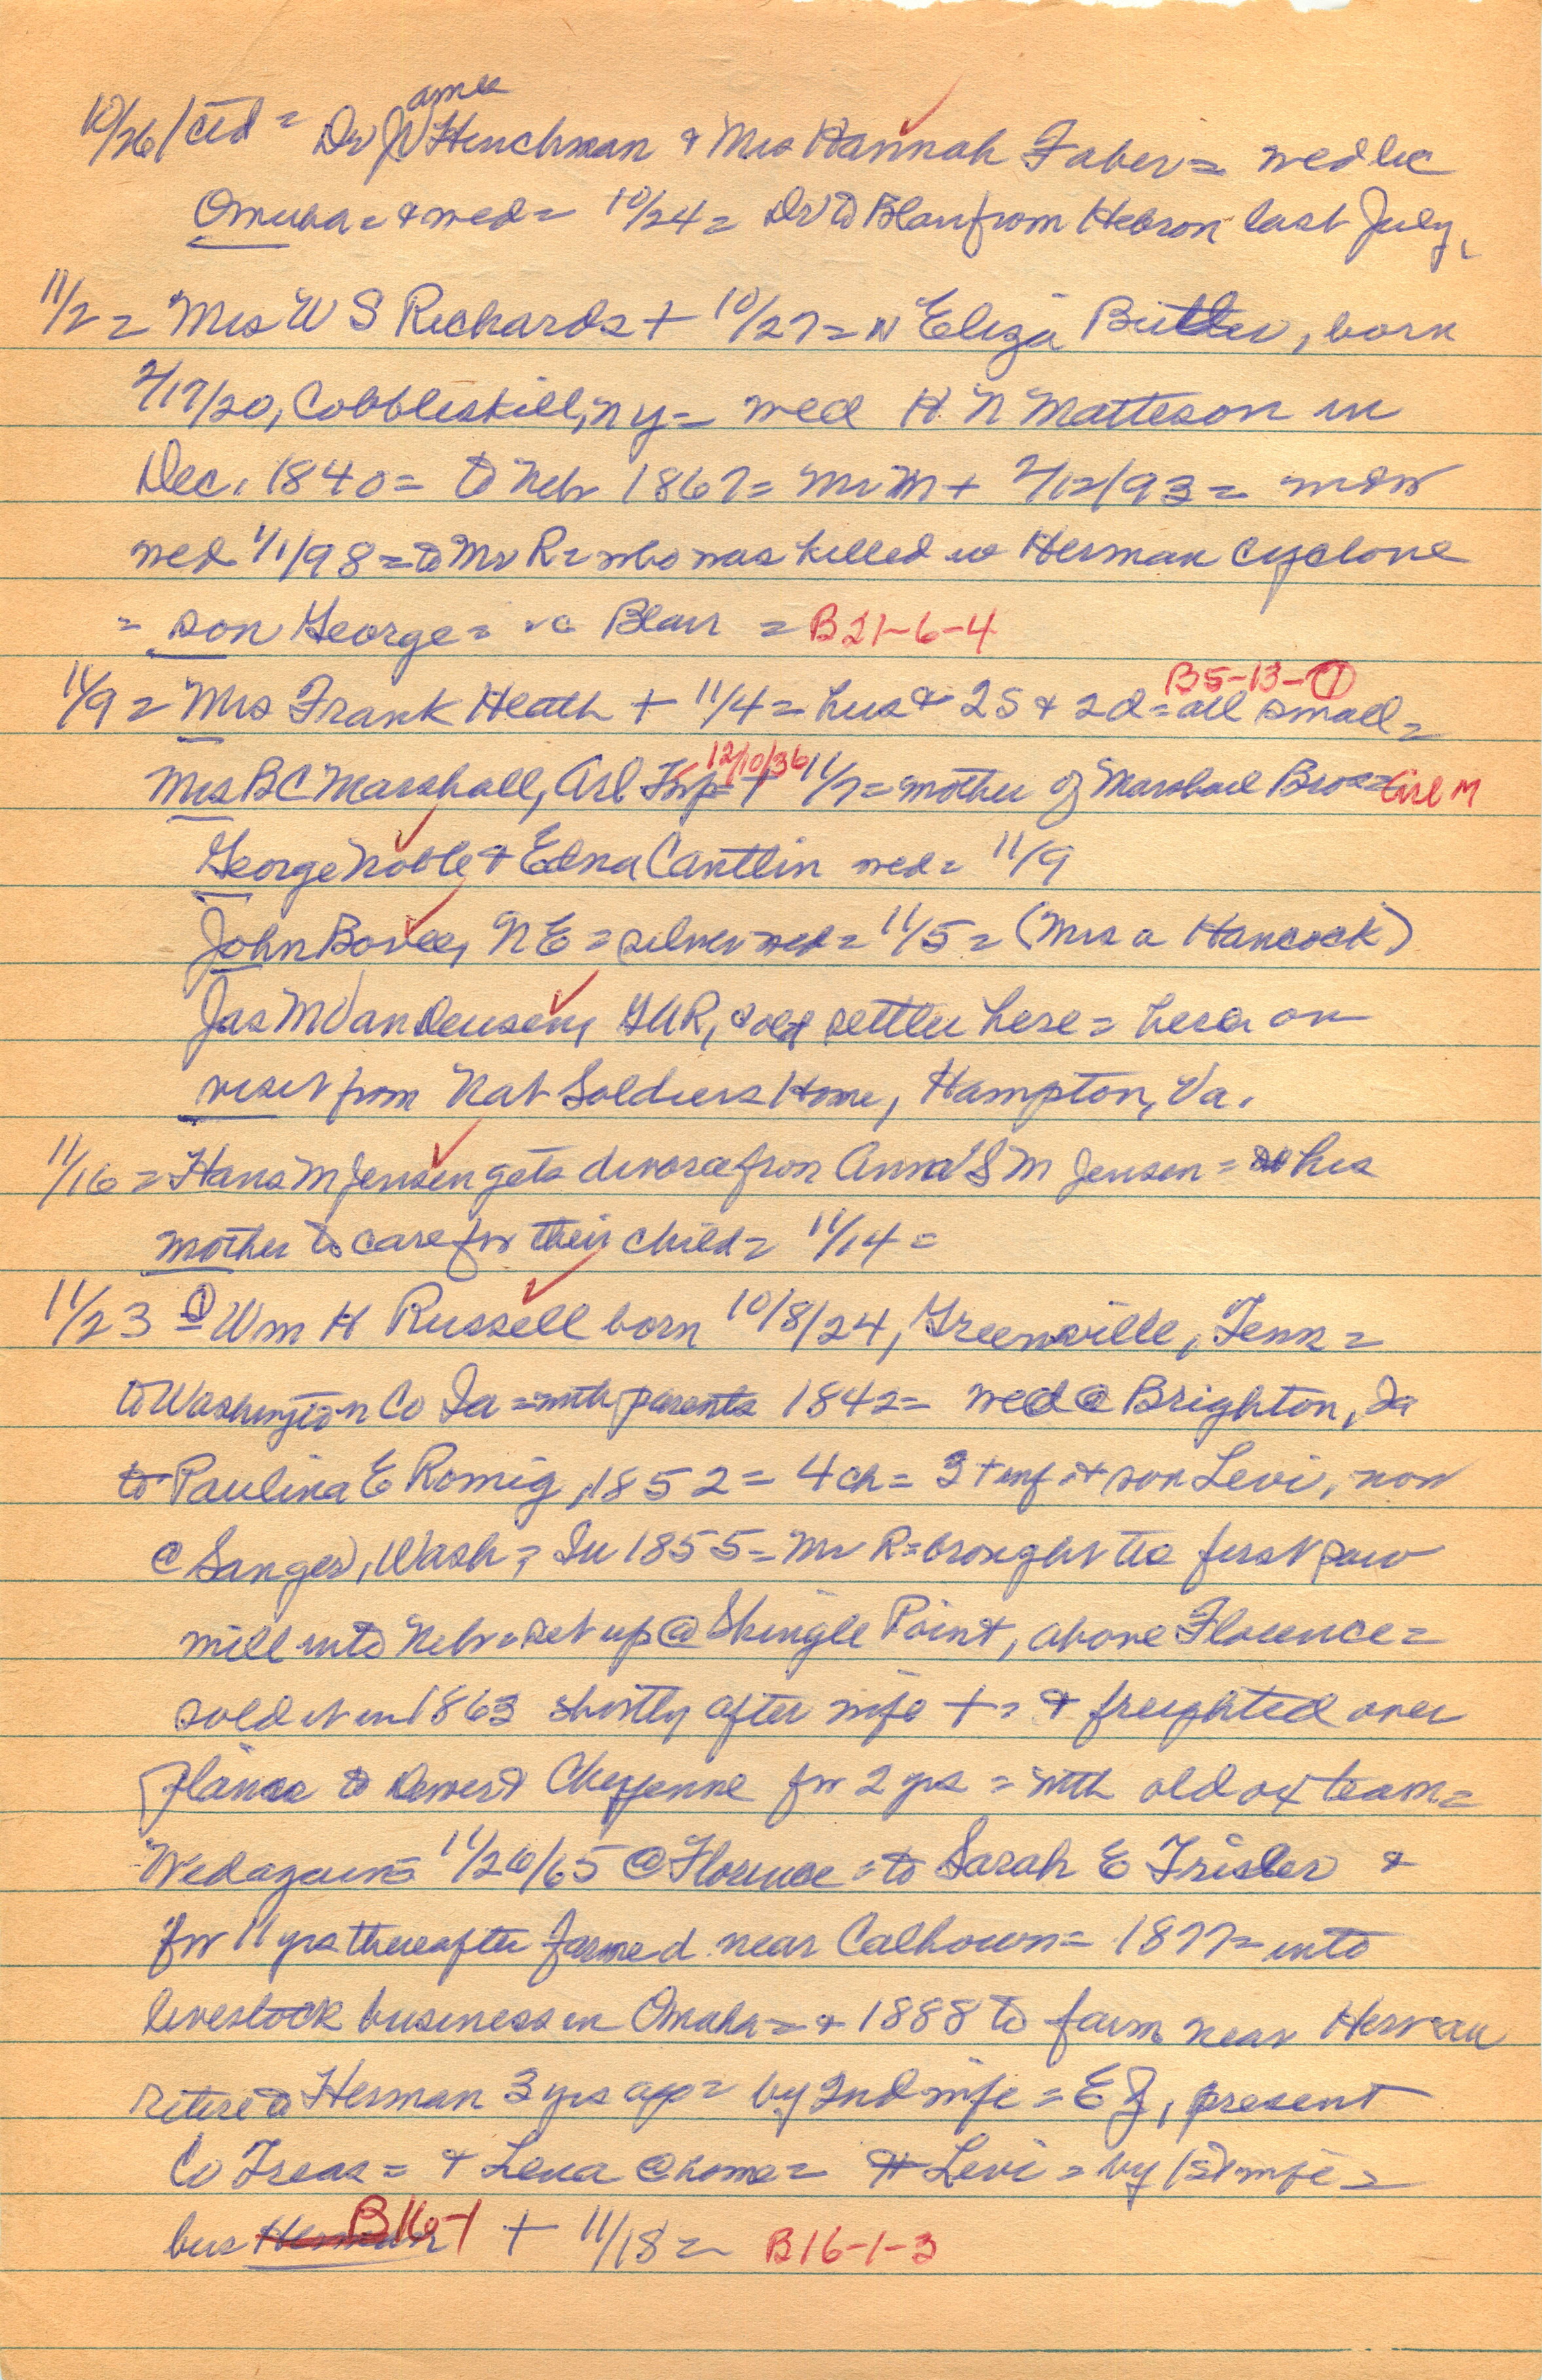 10/26/ctd = Dr James W Henchman & Mrs Hannah Faber = wed lic
Omaha = & wed = 10/24 = Dr to Blair from Hebron last July,
11/2 = Mrs W S Richards + 10/27 = N Eliza Butler, born
2/17/20, Cobbleskill, NY = wed H N Matteson in
Dec, 1840 = to Nebr 1867 = Mr M + 2/12/93 = wdw
wed 1/1/98 = to Mr R = who was killed in Herman Cyclone
= son George = Blair = B21-6-4
B5-13-1
11/9 = Mrs Frank Heath + 11/4 = hus & 2S & 2d = all small =
12/10/36
Mrs BC Marshall, Arl Twp = + 11/7 = mother of Marshall Bros = Arl M
George Noble & Edna Cantlin wed = 11/9
John Bovee, NE = silver wed = 11/5 = (Mrs a Hancock)
Jas M VanDeusen, GAR, & old settler here = here on
visit from Nat Soldiers Home, Hampton, Va.
11/16 = Hans M Jensen gets divorce from Anna S M Jensen = his
mother to care for their child = 11/14 =
11/23 ① = Wm H Russell born 10/8/24, Greenville, Tenn =
to Washington Co Ia = with parents 1842 = wed @ Brighton, Ia
to Paulina E Romig, 1852 = 4 ch = 3 + inf & son Levi, now
@ Sanger, Wash = In 1855 = Mr R = brought the first saw
mill into Nebr = set up @ Shingle Point, above Florence =
sold it in 1863 shortly after wife + = & freighted over
plains to Denver & Cheyenne for 2 yrs = with old ox team =
Wed again = 11/26/65 @ Florence = to Sarah E Trisler &
for 11 yrs thereafter farmed near Calhoun = 1877 = into
livestock business in Omaha = & 1888 to farm near Herman
retired to Herman 3 yrs ago = by 2nd wife = E Z, present
Co Treas = & Lena @ home = Levi = by 1st wife =
bur Herman B16-1 + 11/18 = B16-1-3